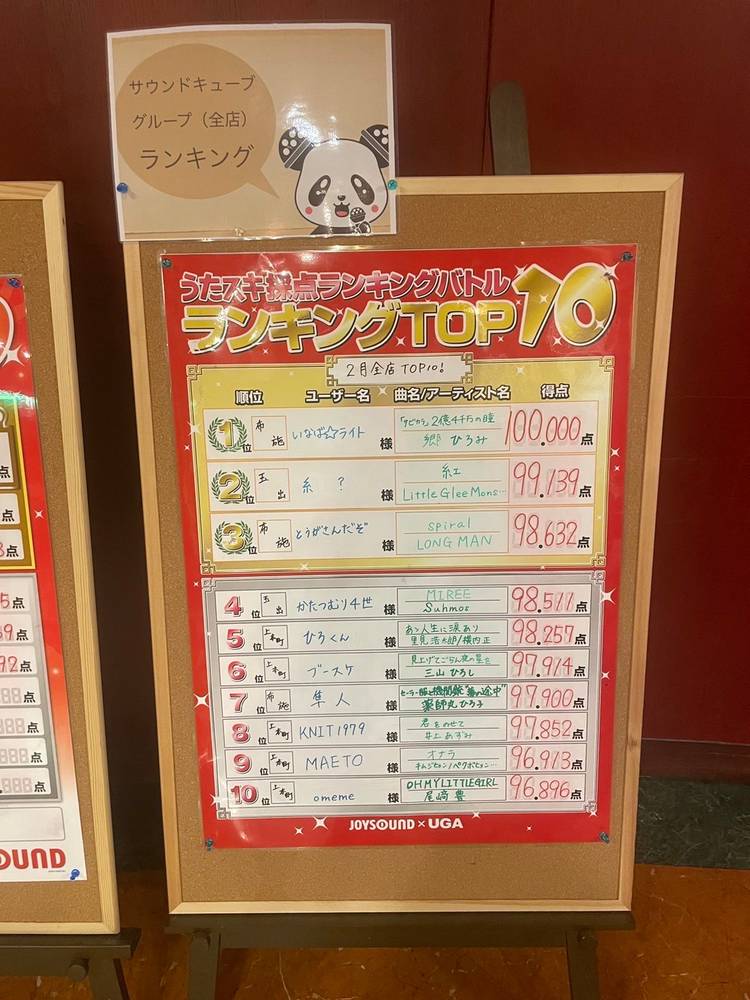 サウンドキューブ
グループ（全店）
ランキング
うたスキ採点ランキングバトル
ランキングTOP10
2月全店 TOP10!
順位 ユーザー名 曲名/アーティスト名 得点
1位 布施 いなば☆ライト 様 「サビカラ」2億4千万の瞳 郷ひろみ 100.000点
2位 玉出 糸 ? 様 紅 Little Glee Mons… 99.139点
3位 布施 とうがさんだぞ 様 spiral LONG MAN 98.632点
4位 玉出 かたつむり4世 様 MIREE Suhmos 98.511点
5位 上本町 ひろくん 様 あゝ人生に涙あり 里見浩太朗/横内正 98.257点
6位 上本町 ブースケ 様 見上げてごらん夜の星を 三山ひろし 97.914点
7位 布施 隼人 様 セーラー服と機関銃 "夢の途中" 薬師丸ひろ子 97.900点
8位 上本町 KNIT1979 様 君をのせて 井上あずみ 97.852点
9位 上本町 MAETO 様 オナラ 96.913点
10位 上本町 omeme 様 OH MY LITTLE GIRL 尾崎豊 96.896点
JOYSOUND×UGA
点
点
点
点
点
点
888点
888点
888点
.888点
OUND